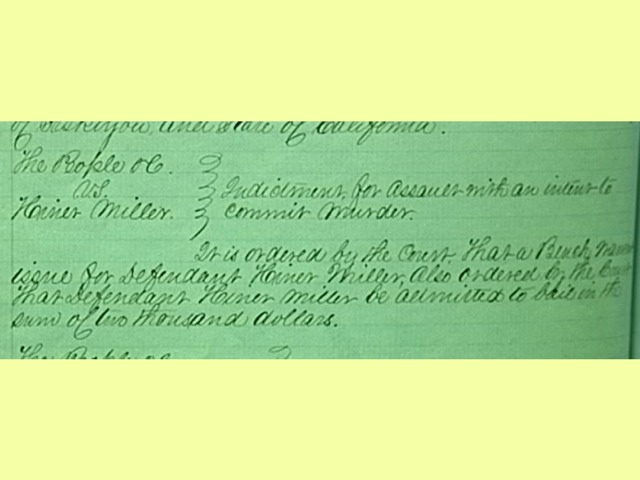 of Siskiyou, and State of California.
The People &C.
VS.
Hiner Miller.
Indictment, for assault with an intent to
commit murder.
It is ordered by the Court, That a Bench Warrant
issue for Defendant Hiner Miller, also ordered by the Court
That Defendant Hiner Miller be admitted to bail in the
sum of two thousand dollars.
The People &C